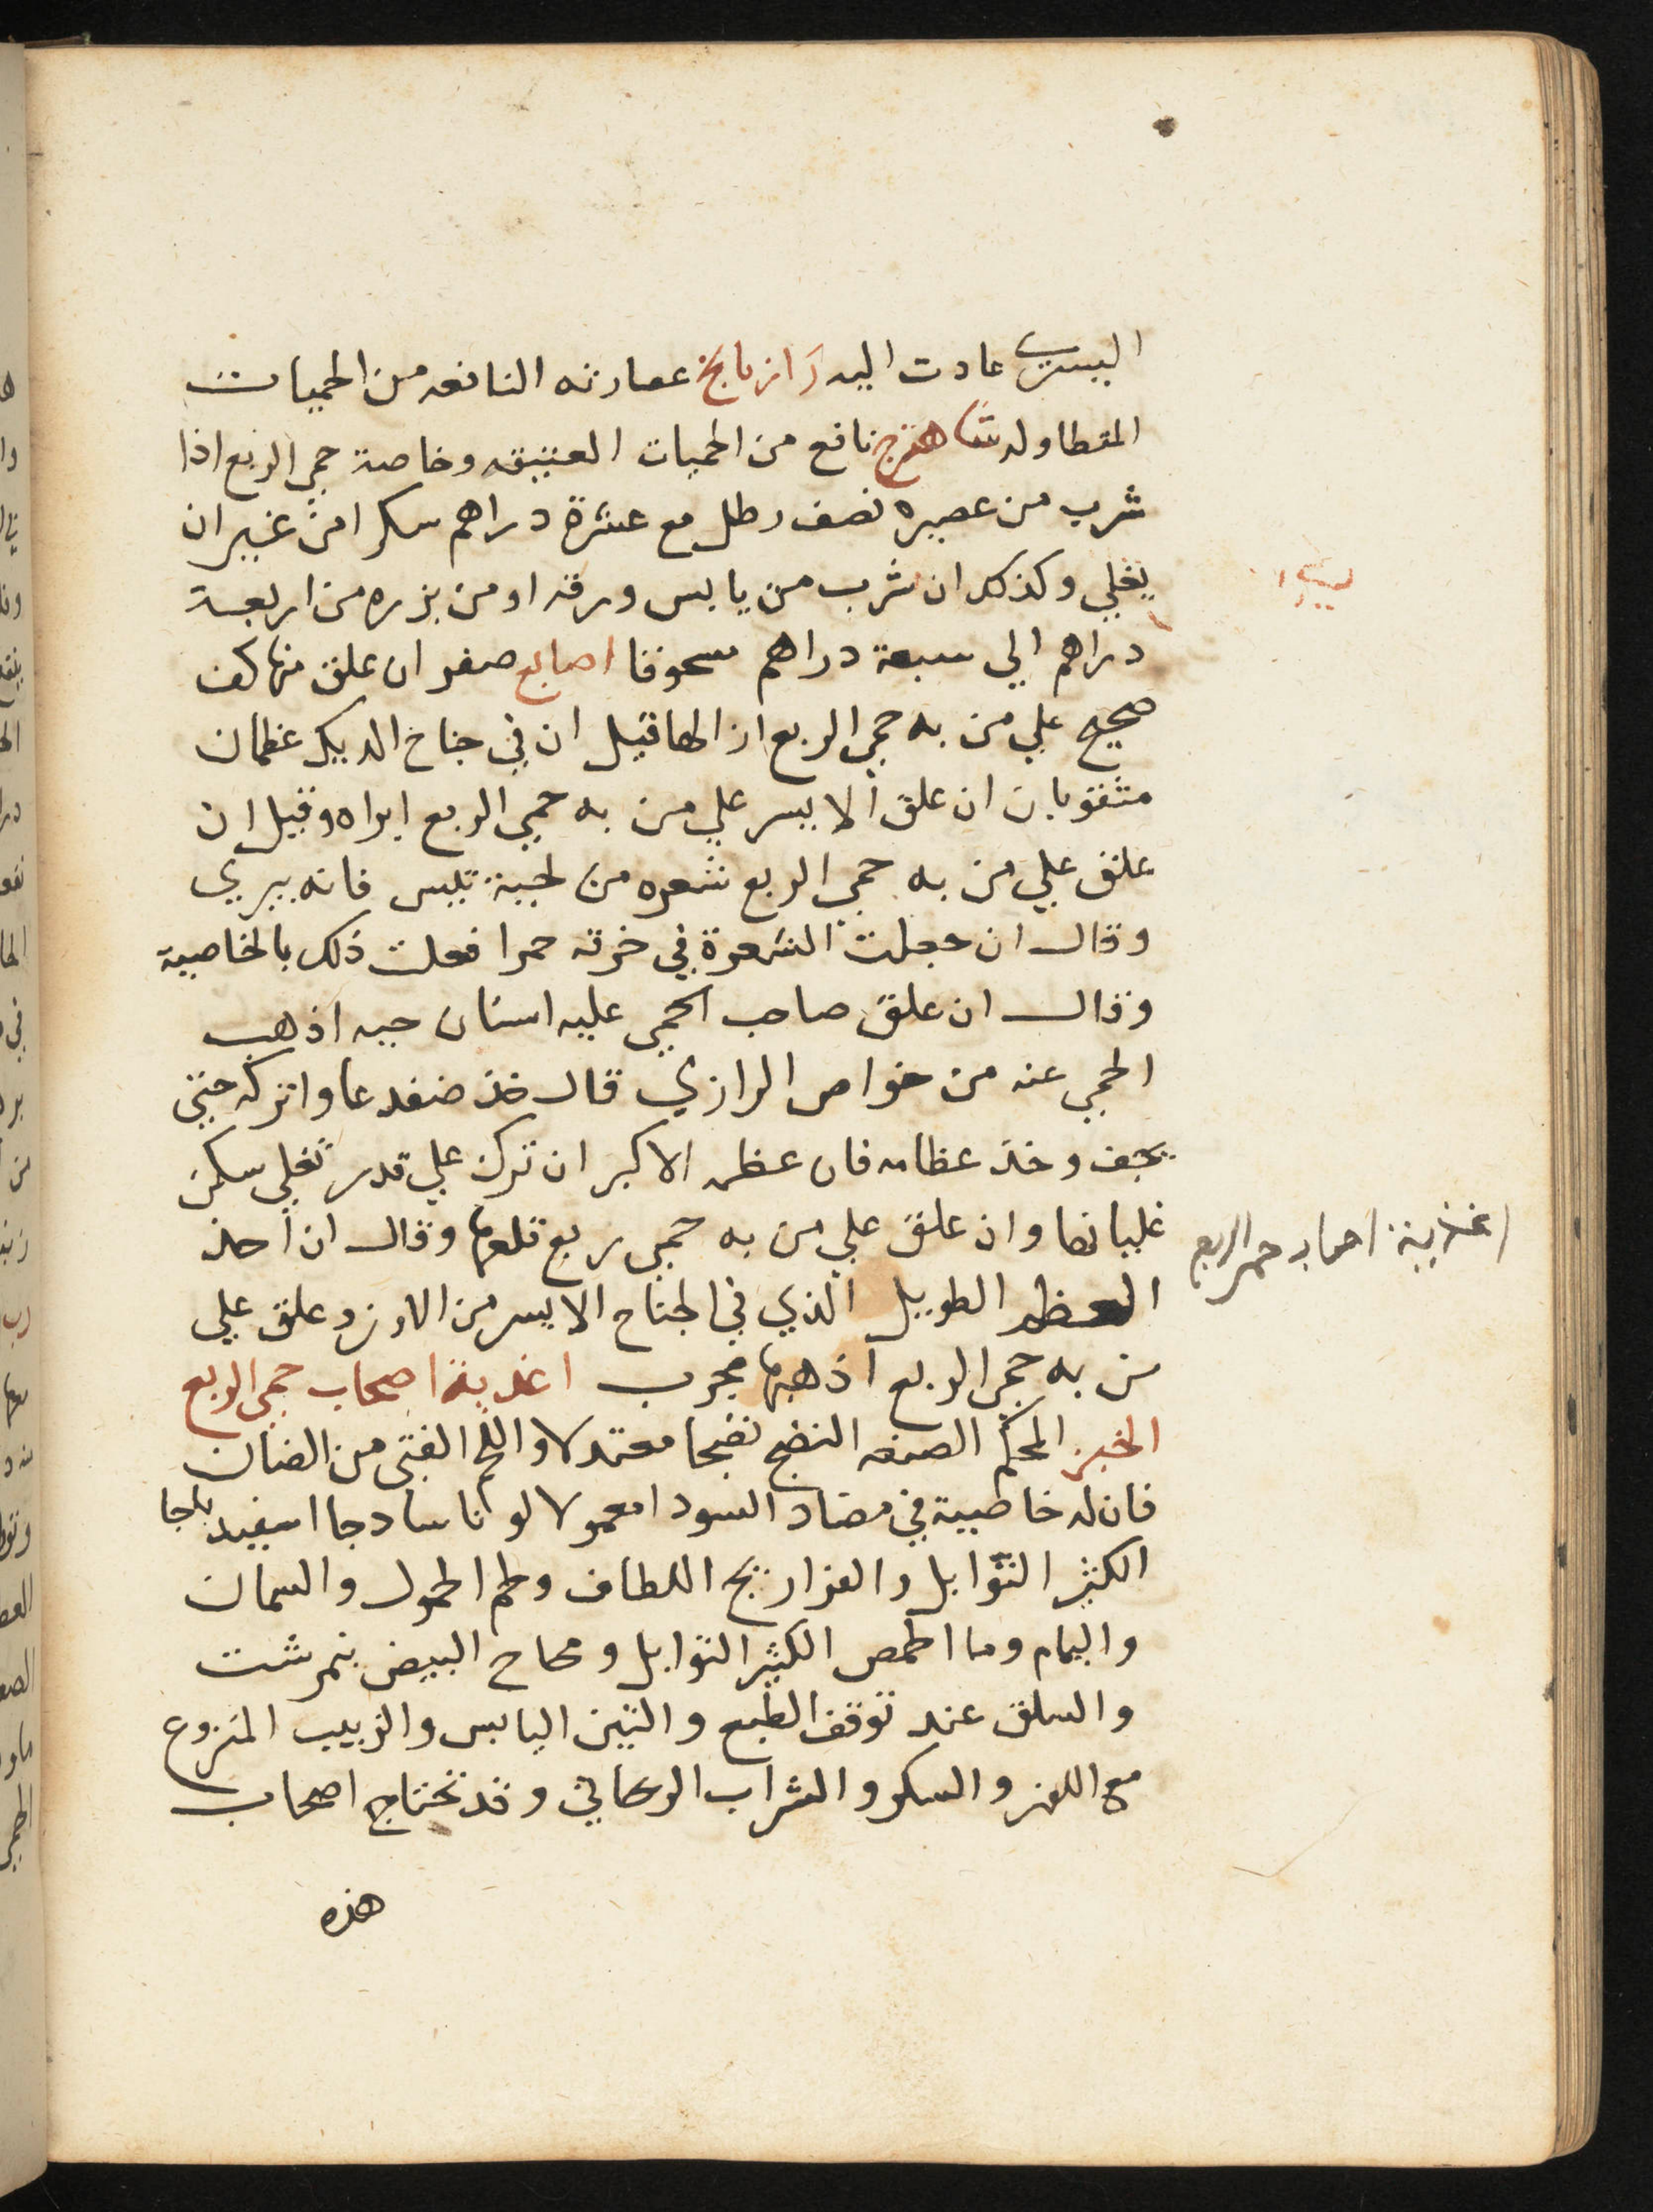 اليسرى عادت اليه رازيانج عصارته النافعه من الحميات
المتطاوله شاهترج نافع من الحميات العتيقه وخاصة حمي الربع اذا
شرب من عصيره نصف رطل مع عشرة دراهم سكرا من غير ان
يغلي وكذلك ان شرب من يابس ورقه او من بزره من اربعة
دراهم الي سبعة دراهم مسحوقا اصابع صفر ان علق منها كف
صحيح علي من به حمي الربع ازالها قيل ان في جناح الديك عظمان
مثقوبان ان علق الايسر علي من به حمي الربع ابراه وقيل ان
علق علي من به حمي الربع شعره من لحية تيس فانه يبري
وقال ان جعلت الشعرة في خرقه حمرا فعلت ذلك بالخاصية
وقال ان علق صاحب الحمي عليه اسنان حيه اذهب
الحمي عنه من خواص الرازي قال خذ ضفدعا واتركه حتي
يجف وخذ عظامه فان عظمه الاكبر ان ترك علي قدر تغلي سكن
غليانها وان علق علي من به حمي ربع قلعها وقال ان اخذ
العظم الطويل الذي في الجناح الايسر من الاوز وعلق علي
من به حمي الربع اذهبها مجرب اغذية اصحاب حمي الربع
الخبز المحكم الصنعه النضج نضجا معتدلا واللحم الفتى من الضان
فان له خاصية في مضاد السودا معمولا لونا سادجا اسفيدباجا
الكثير التوابل والفراريج اللطاف ولحم الحمول والسمان
واليمام وما الحمص الكثير التوابل ومحاح البيض نمرشت
والسلق عند توقف الطبع والتين اليابس والزبيب المنزوع
مع اللوز والسكر والشراب الريحاني وقد تحتاج اصحاب
هذه
اغذية اصحاب حمي الربع